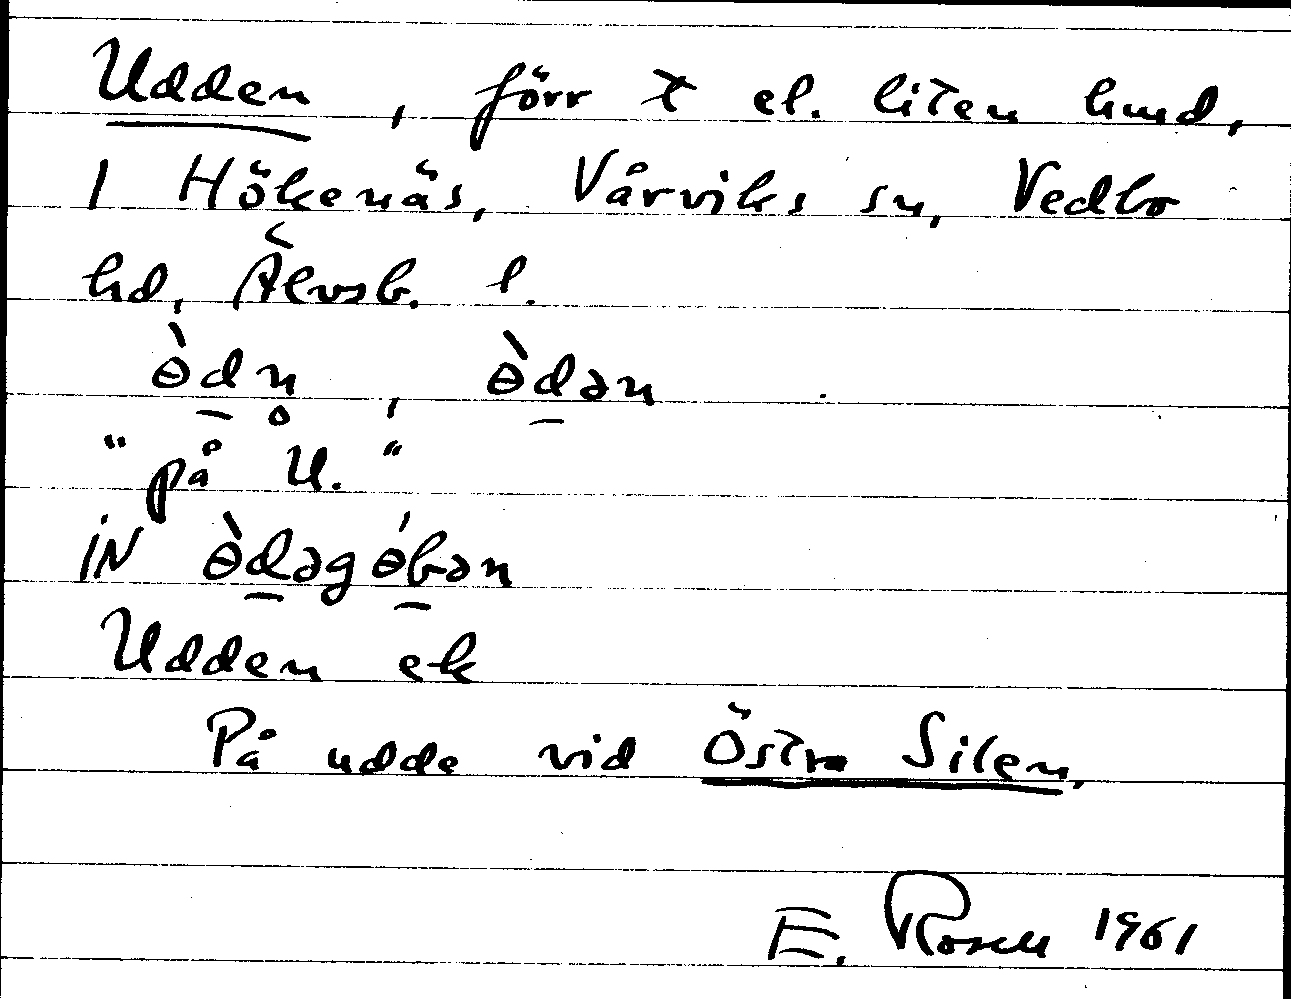 Udden, förr t el. liten lund,
1 Hökenäs, Vårviks sn, Vedbo
hd, Älvsb. l.
ɵ̀d̲n̥, ɵ̀d̲ən
"på U."
iN ɵ̀d̲əgɵ́b̲ən
Udden ek
På udde vid Östra Silen.
E. Rosell 1961